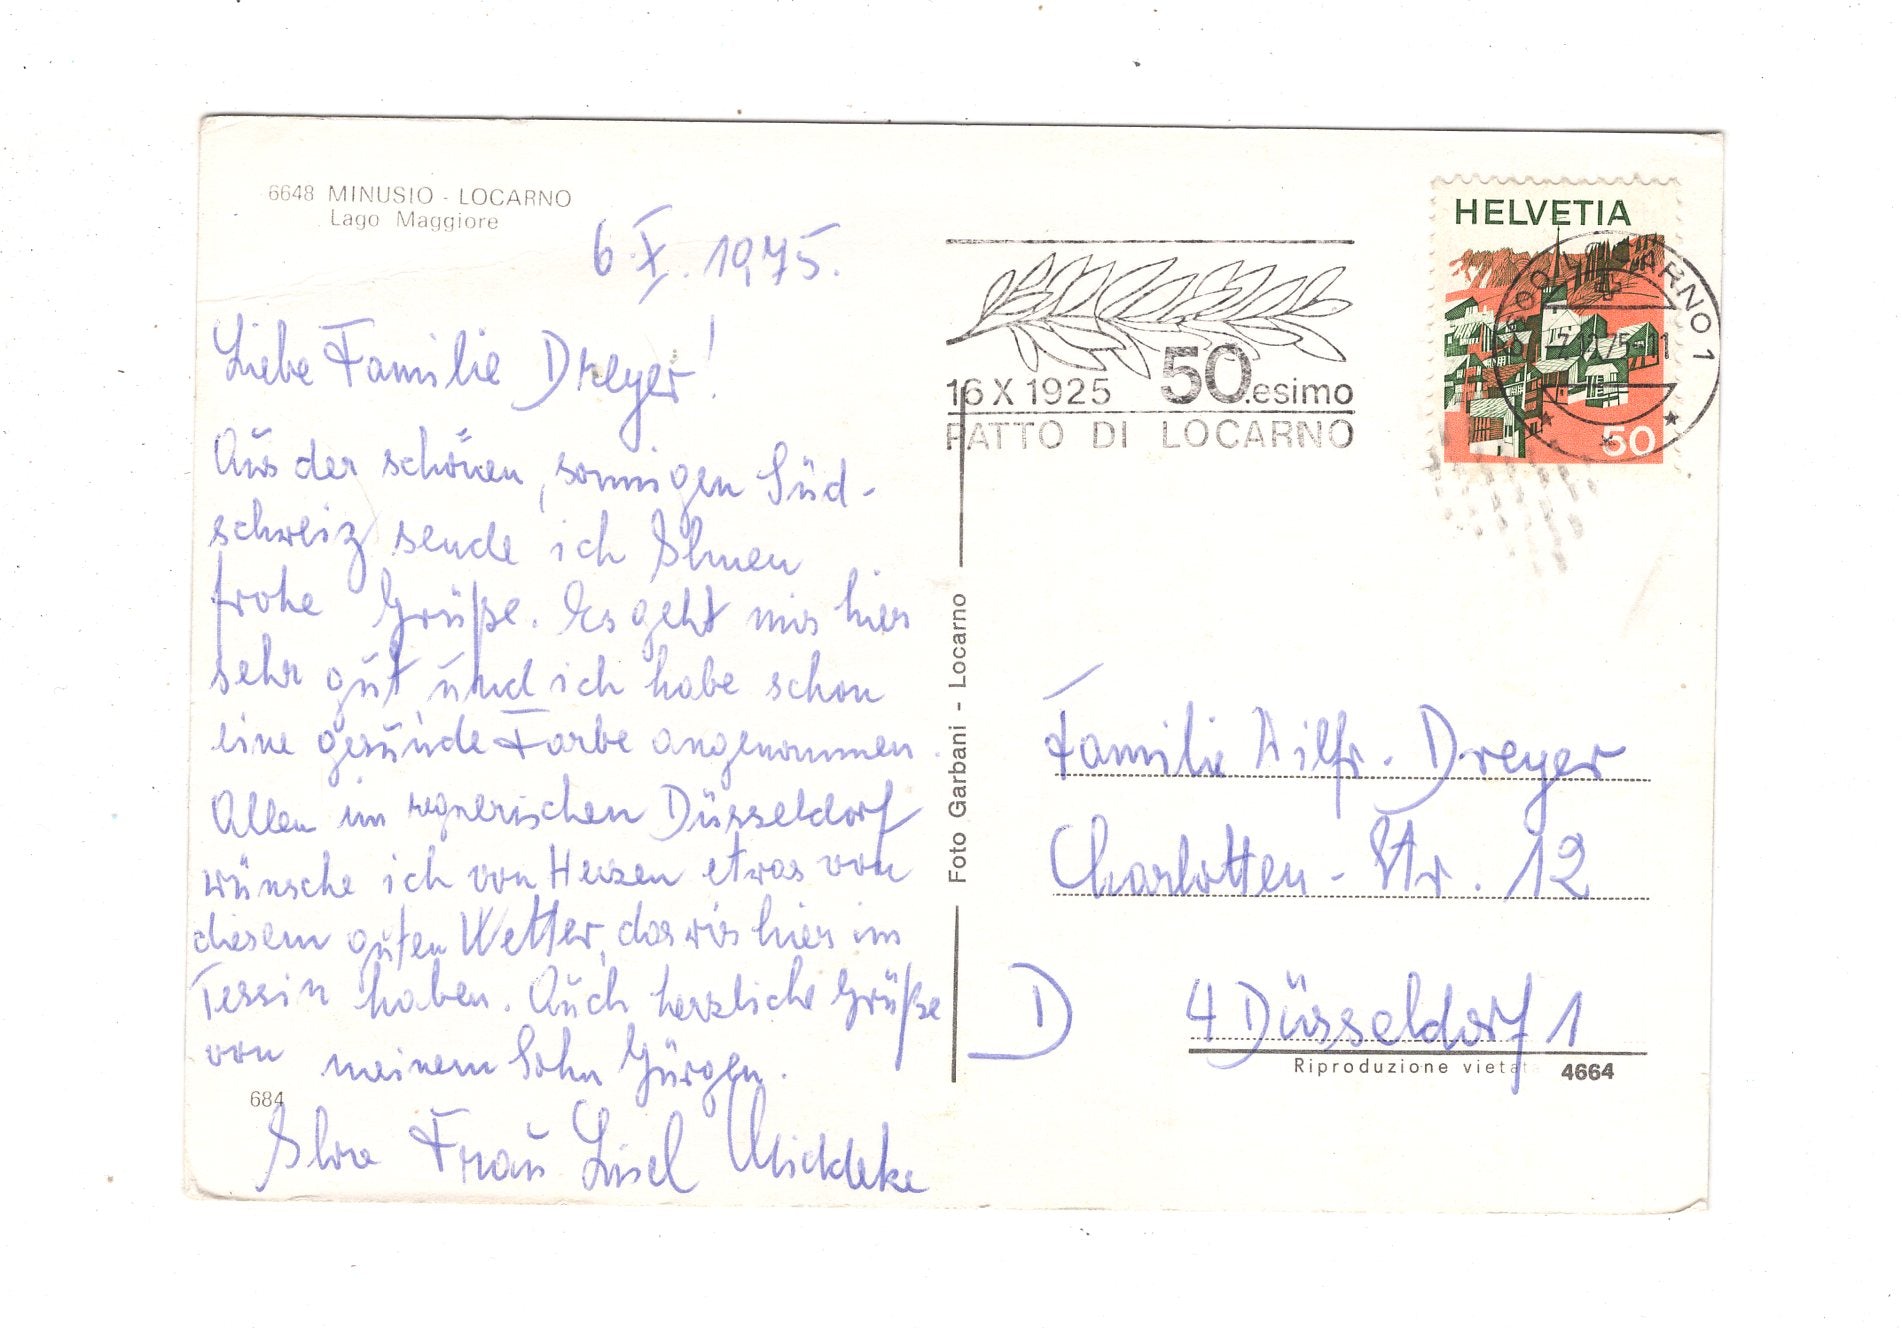 6648 MINUSIO - LOCARNO
Lago Maggiore
6.X.1975.
Liebe Familie Dreyer!
Aus der schönen, sonnigen Süd-
schweiz sende ich Ihnen
frohe Grüße. Es geht mir hier
sehr gut und ich habe schon
eine gesunde Farbe angenommen.
Allen im regnerischen Düsseldorf
wünsche ich von Herzen etwas von
diesem guten Wetter, das wir hier im
Tessin haben. Auch herzliche Grüße
von meinem Sohn Jürgen.
684
Ihre Frau Lisel Middeke
Foto Garbani - Locarno
16 X 1925 50.esimo
PATTO DI LOCARNO
HELVETIA
6600 LOCARNO 1
50
Familie Wilfr. Dreyer
Charlotten-Str. 12
D 4 Düsseldorf 1
Riproduzione vietat
4664